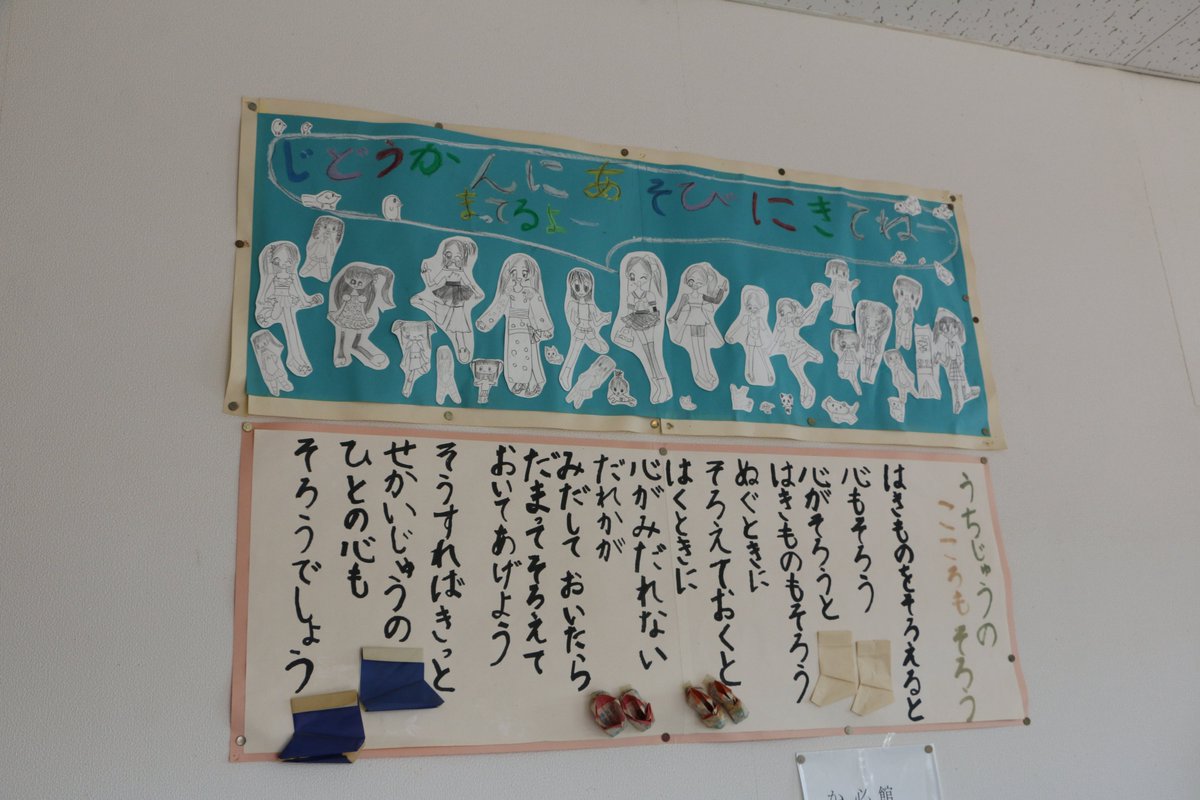 じどうかんにあそびにきてねー
まってるよー
うちじゅうの
こころもそろう
はきものをそろえると
心もそろう
心がそろうと
はきものもそろう
ぬぐときに
そろえておくと
はくときに
心がみだれない
だれかが
みだして おいたら
だまってそろえて
おいてあげよう
そうすればきっと
せかいじゅうの
ひとの心も
そろうでしょう
館
必
か